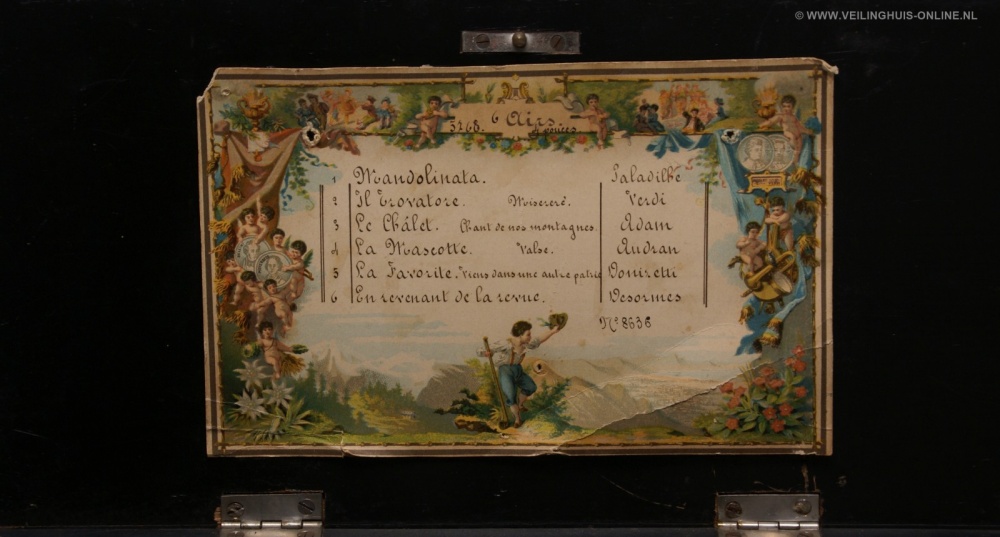 © WWW.VEILINGHUIS-ONLINE.NL
5268. 6 Airs.
4 pouces
1 Mandolinata. Paladilhe
2 Il Trovatore. Misereré. Verdi
3 Le Châlet. Chant de nos montagnes. Adam
4 La Mascotte. Valse. Audran
5 La Favorite. Viens dans une autre patrie Donizetti
6 En revenant de la revue. Desormes
Nº 8636